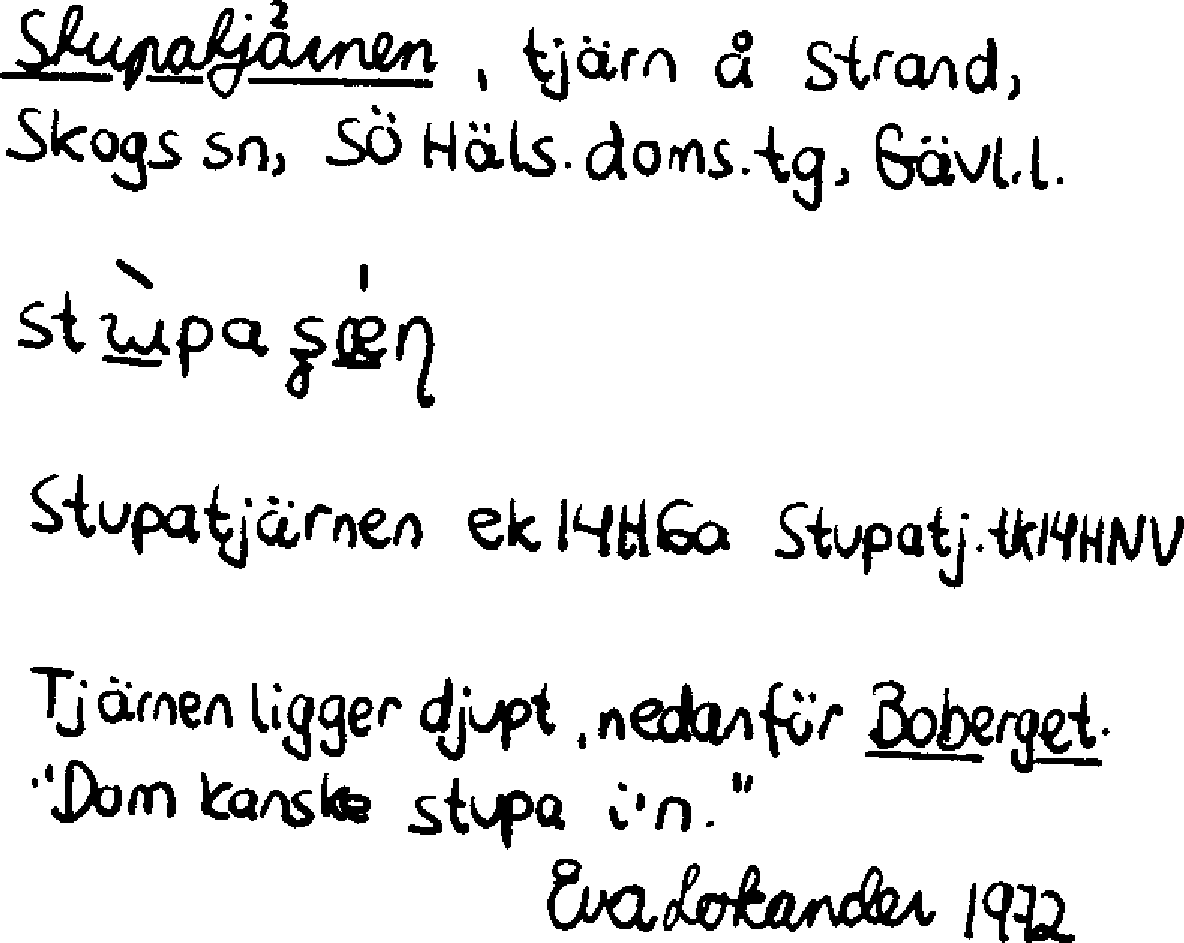 Stupatjärnen, tjärn å Strand,
Skogs sn, SÖ Häls. doms. tg, Gävl. l.
Stupatjärnen ek 14H6a Stupatj. tk14HNV
Tjärnen ligger djupt, nedanför Boberget.
"Dom kanske stupa i'n."
Eva Lokander 1972